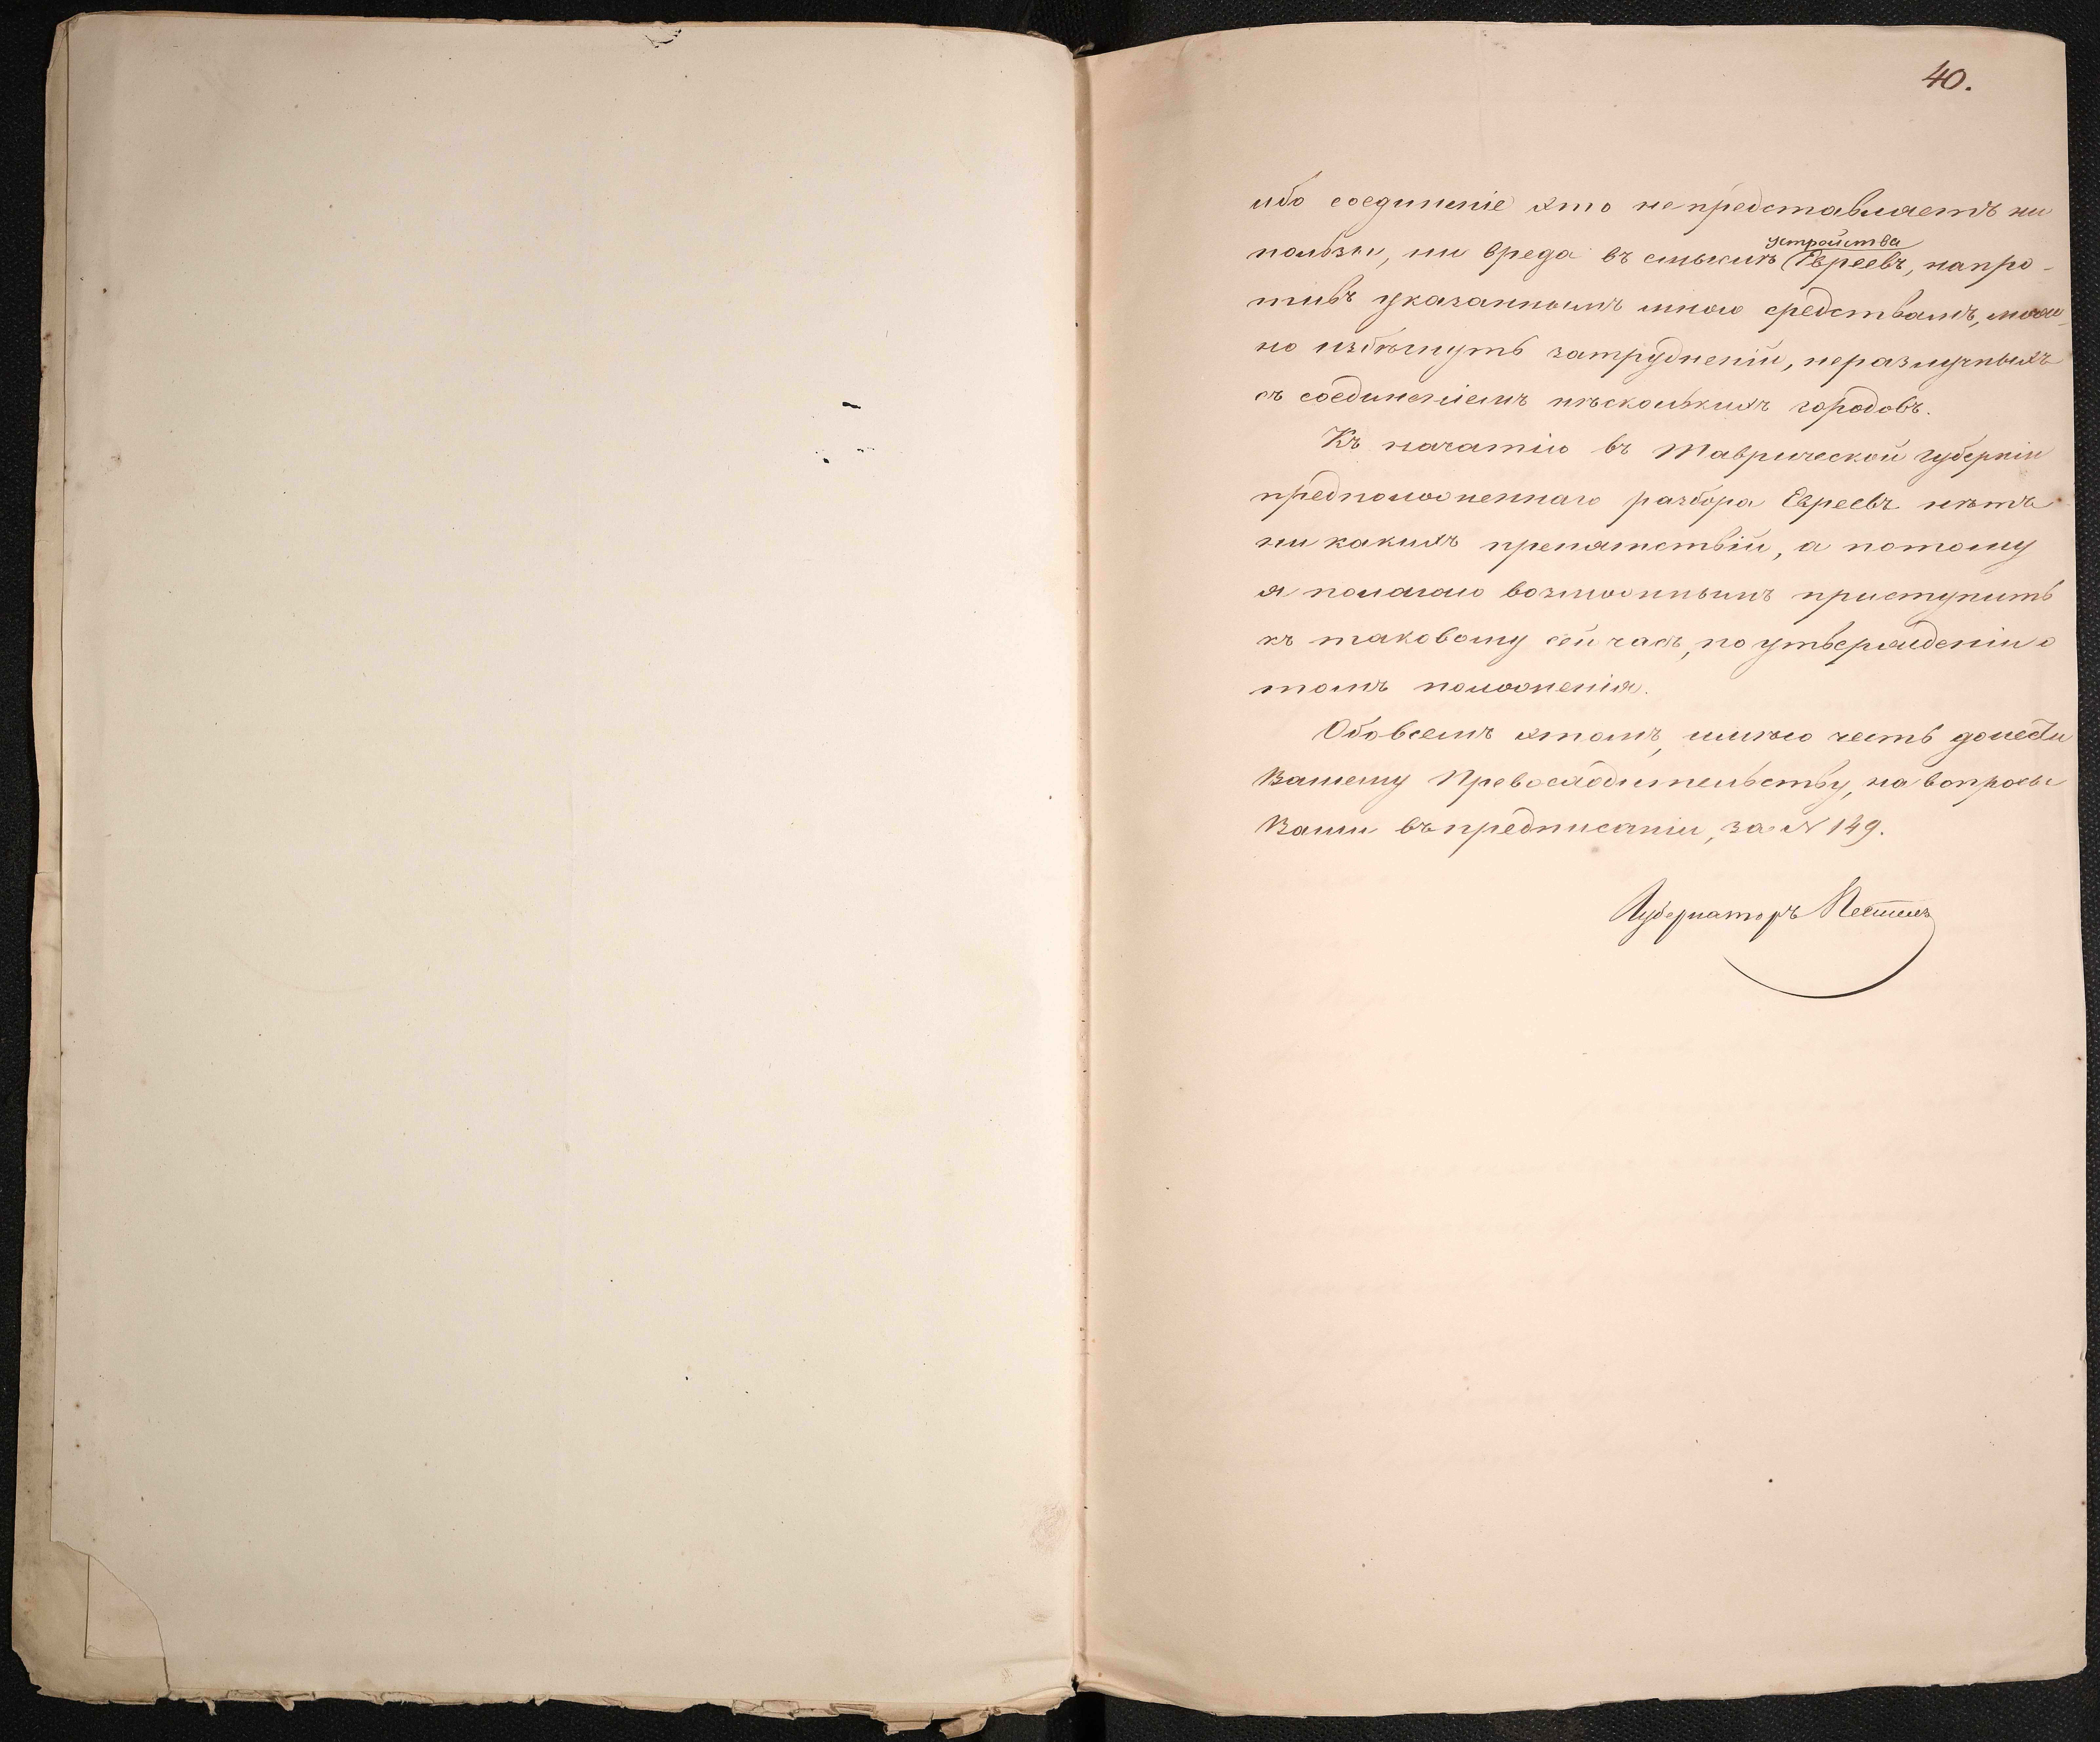 40.
ибо соединеніе это непредставляетъ ни
пользы, ни вреда въ смыслѣ устройства Евреевъ, напро-
тивъ указаннымъ мною средствамъ, мож-
но избѣгнуть затрудненій, неразлучныхъ
съ соединеніемъ нѣсколькихъ городовъ.
Къ начатію въ Таврической Губерніи
предположеннаго разбора Евреевъ нѣтъ
ни какихъ препятствій, а потому
я полагаю возможнымъ приступить
къ таковому сей часъ, по утвержденіи о
томъ положенія.
Обовсемъ этомъ, имѣю честь донести
Вашему Превосходительству, на вопросы
Ваши въ предписаніи, за № 149.
Губернаторъ Пестель